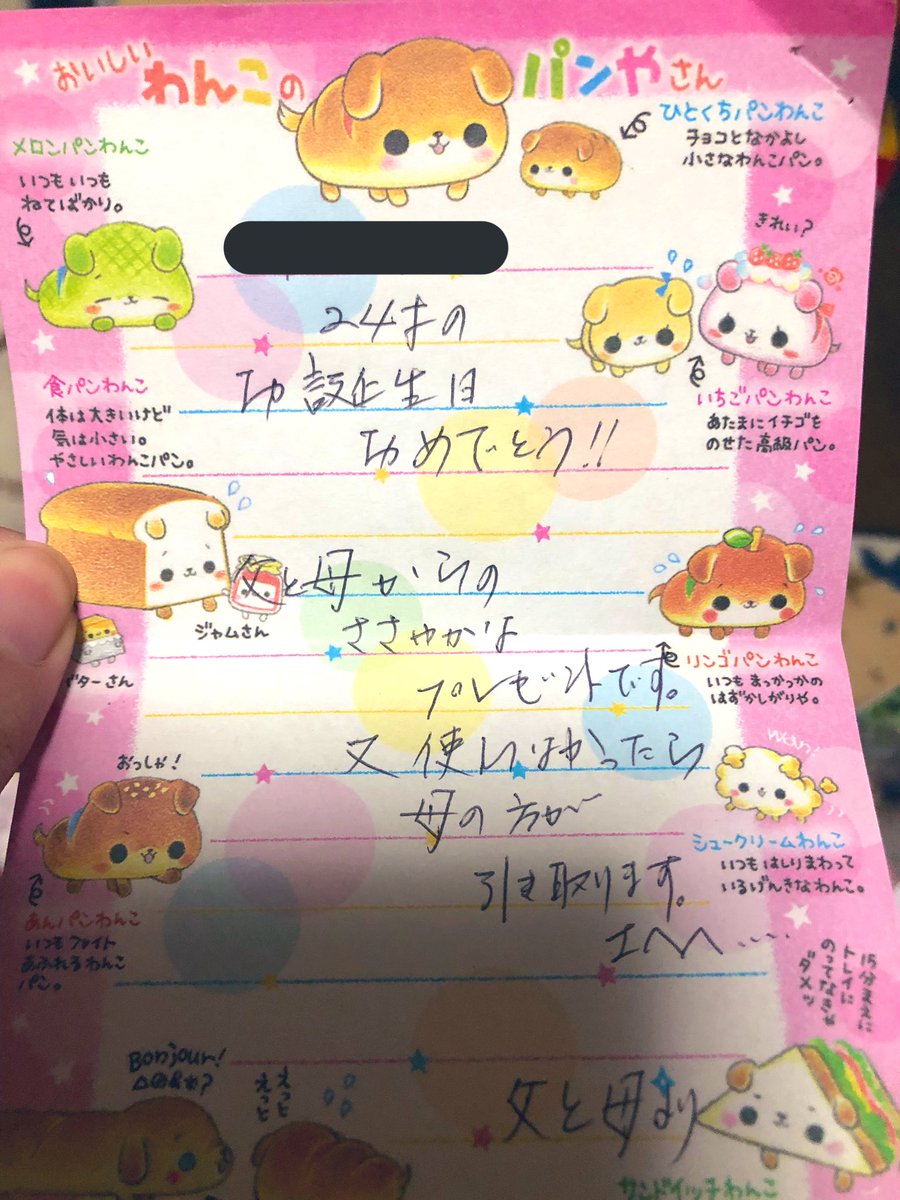 おいしい わんこの パンやさん
ひとくちパンわんこ
チョコとなかよし
小さなわんこパン。
メロンパンわんこ
いつもいつも
ねてばかり。
きれい?
24才の
お誕生日
おめでとう!!
食パンわんこ
体は大きいけど
気は小さい。
やさしいわんこパン。
いちごパンわんこ
あたまにイチゴを
のせた高級パン。
父と母からの
ささやかな
プレゼントです。
又 使いなかったら
母の方が
引き取ります。
エへへ....
ジャムさん
バターさん
リンゴパンわんこ
いつもまっかっかの
はずかしがりや。
おっしゃ!
あんパンわんこ
いつもファイト
あふれるわんこ
パン。
シュークリームわんこ
いつもはしりまわって
いるげんきなわんこ。
15分まえに
トレイに
のってなきゃ
ダメッ
Bonjour!
えっと
えっと
父と母より
サンドイッチわんこ